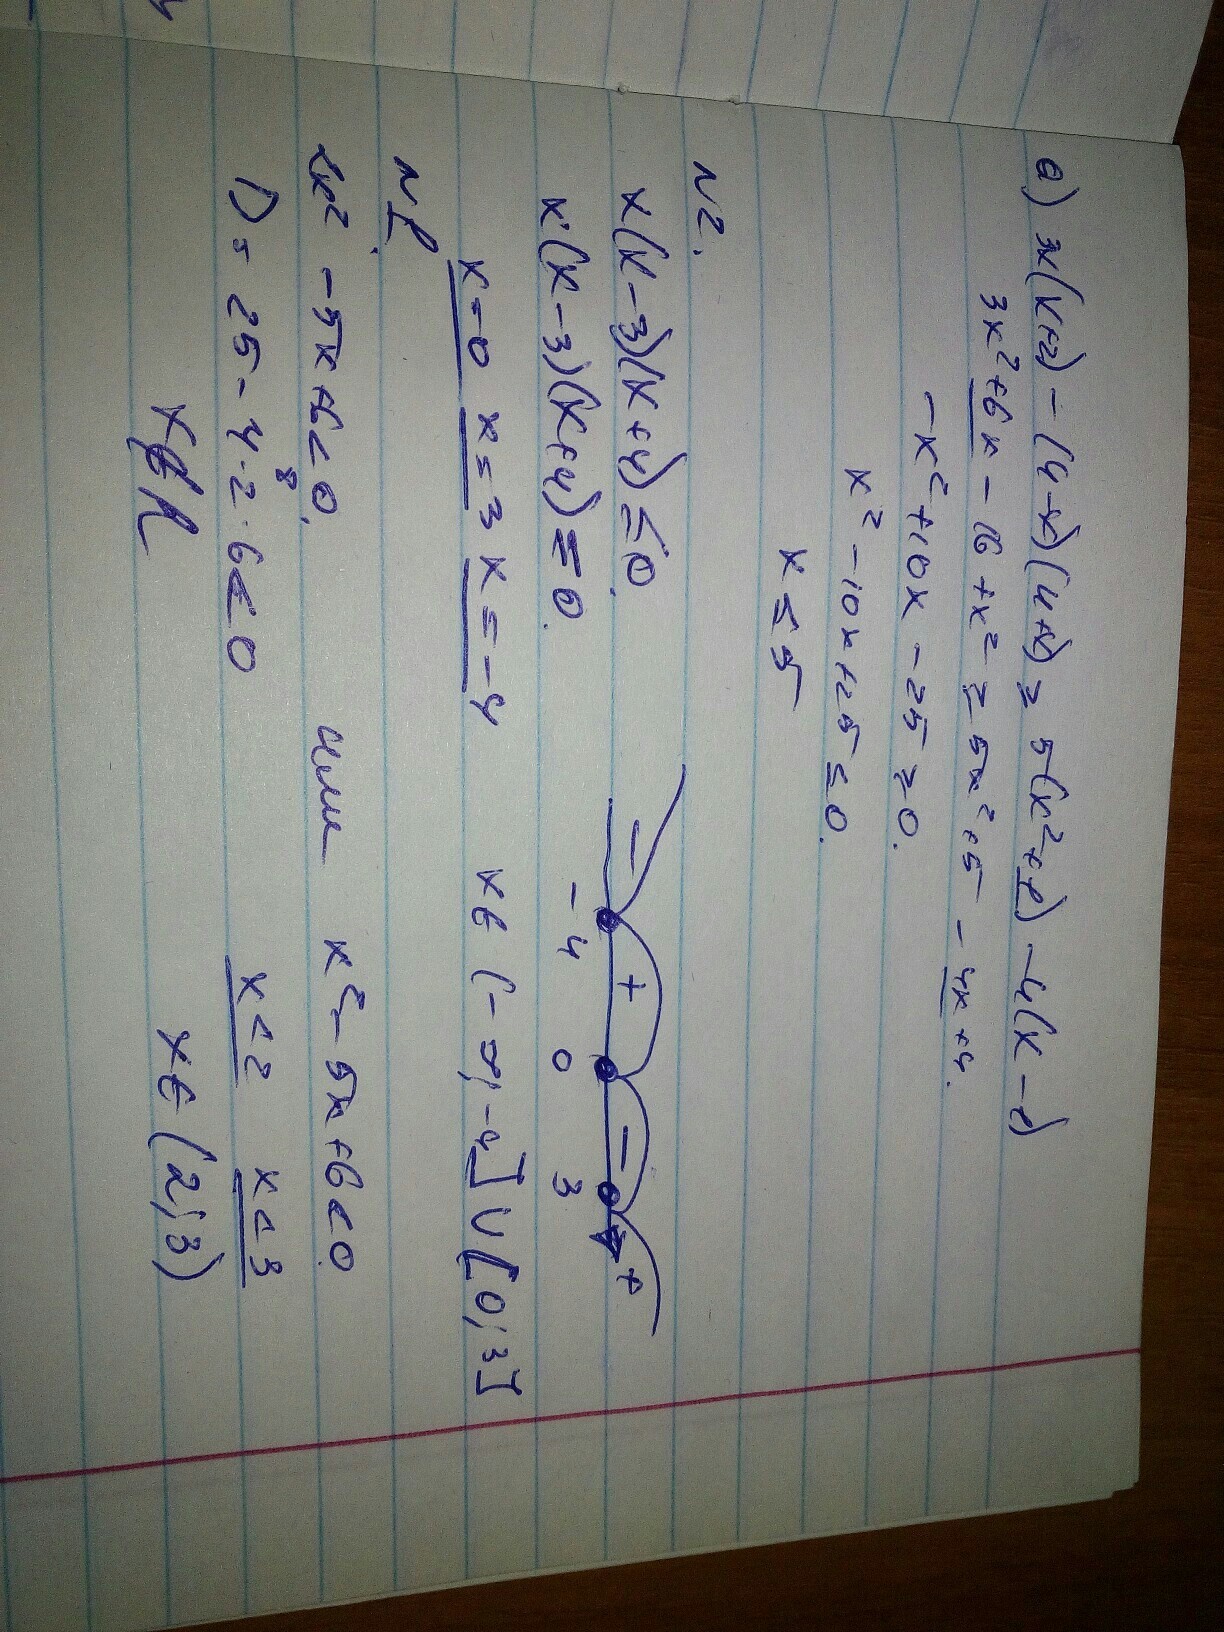 е) 3x(x+2) - (4-x)(4+x) ≥ 5(x²+1) - 4(x-1)
3x²+6x - 16 + x² ≥ 5x²+5 - 4x+4.
-x²+10x - 25 ≥ 0.
x² - 10x+25 ≤ 0.
x ≤ 5
N2.
x(x-3)(x+4) ≤ 0.
x(x-3)(x+4) = 0.
- + - +
-4 0 3
x=0 x=3 x=-4 x∈(-∞;-4]∪[0;3]
N1
2x² - 5x+6<0. или x² - 5x+6<0
D= 25 - 4·2·6<0 x<2 x<3
8
x∉R x∈(2;3)